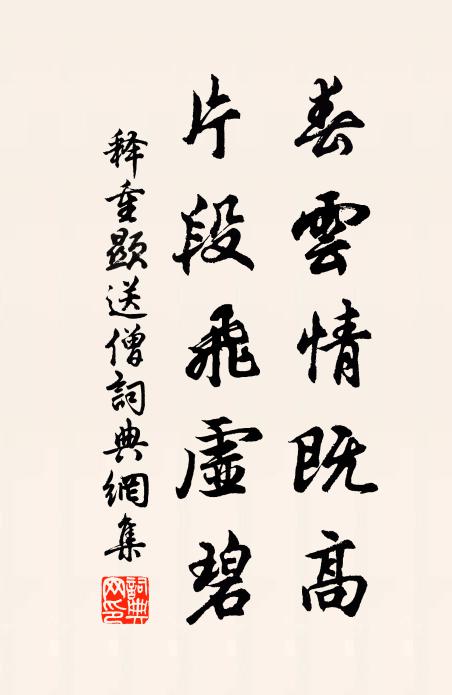 春雲情既高
片段飛虛碧
釋重顯送僧詞典網集
詞典網印